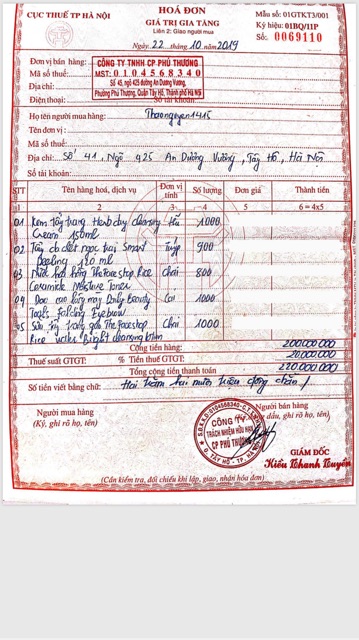 CỤC THUẾ TP HÀ NỘI
HOÁ ĐƠN
GIÁ TRỊ GIA TĂNG
Liên 2: Giao người mua
Mẫu số: 01GTKT3/001
Ký hiệu: 01BQ/11P
Số: 0069110
Ngày 22 tháng 10 năm 2019
Đơn vị bán hàng:
Mã số thuế:
Địa chỉ:
Điện thoại: Số tài khoản:
CÔNG TY TNHH CP PHÚ THƯƠNG
MST: 0104568340
Số 45, ngõ 425 đường An Dương Vương,
Phường Phú Thượng, Quận Tây Hồ, Thành phố Hà Nội
Họ tên người mua hàng: Thaonguyen1415
Tên đơn vị:
Mã số thuế:
Địa chỉ: Số 41, Ngõ 425 An Dương Vương, Tây Hồ, Hà Nội
Số tài khoản:
STT Tên hàng hoá, dịch vụ Đơn vị tính Số lượng Đơn giá Thành tiền
1 2 3 4 5 6=4x5
01 Kem tẩy trang Herb day cleansing 1000
Cream 150ml
02 Tẩy da chết ngọc trai Smart Tuýp 900
Peeling 120ml
03 Nước hoa hồng The Face shop Rice Chai 800
Ceramide Moisture Toner
04 Dao cạo lông mày Daily Beauty Cái 1000
Tools Folding Eyebrow
05 Sữa rửa trang gạo The Faceshop Chai 1000
Rice water Bright cleansing lotion
Cộng tiền hàng: 200.000.000
Thuế suất GTGT: % Tiền thuế GTGT: 20.000.000
Tổng cộng tiền thanh toán: 220.000.000
Số tiền viết bằng chữ: Hai trăm hai mươi triệu đồng chẵn /
Người mua hàng
(Ký, ghi rõ họ, tên)
Người bán hàng
dấu, ghi rõ họ, tên)
S.Đ.K.D: 0104568340-C.T
CÔNG TY
TRÁCH NHIỆM HỮU HẠN
CP PHÚ THƯƠNG
Q. TÂY HỒ - TP. HÀ NỘI
GIÁM ĐỐC
Kiều Thanh Huyền
(Cần kiểm tra, đối chiếu khi lập, giao, nhận hóa đơn)